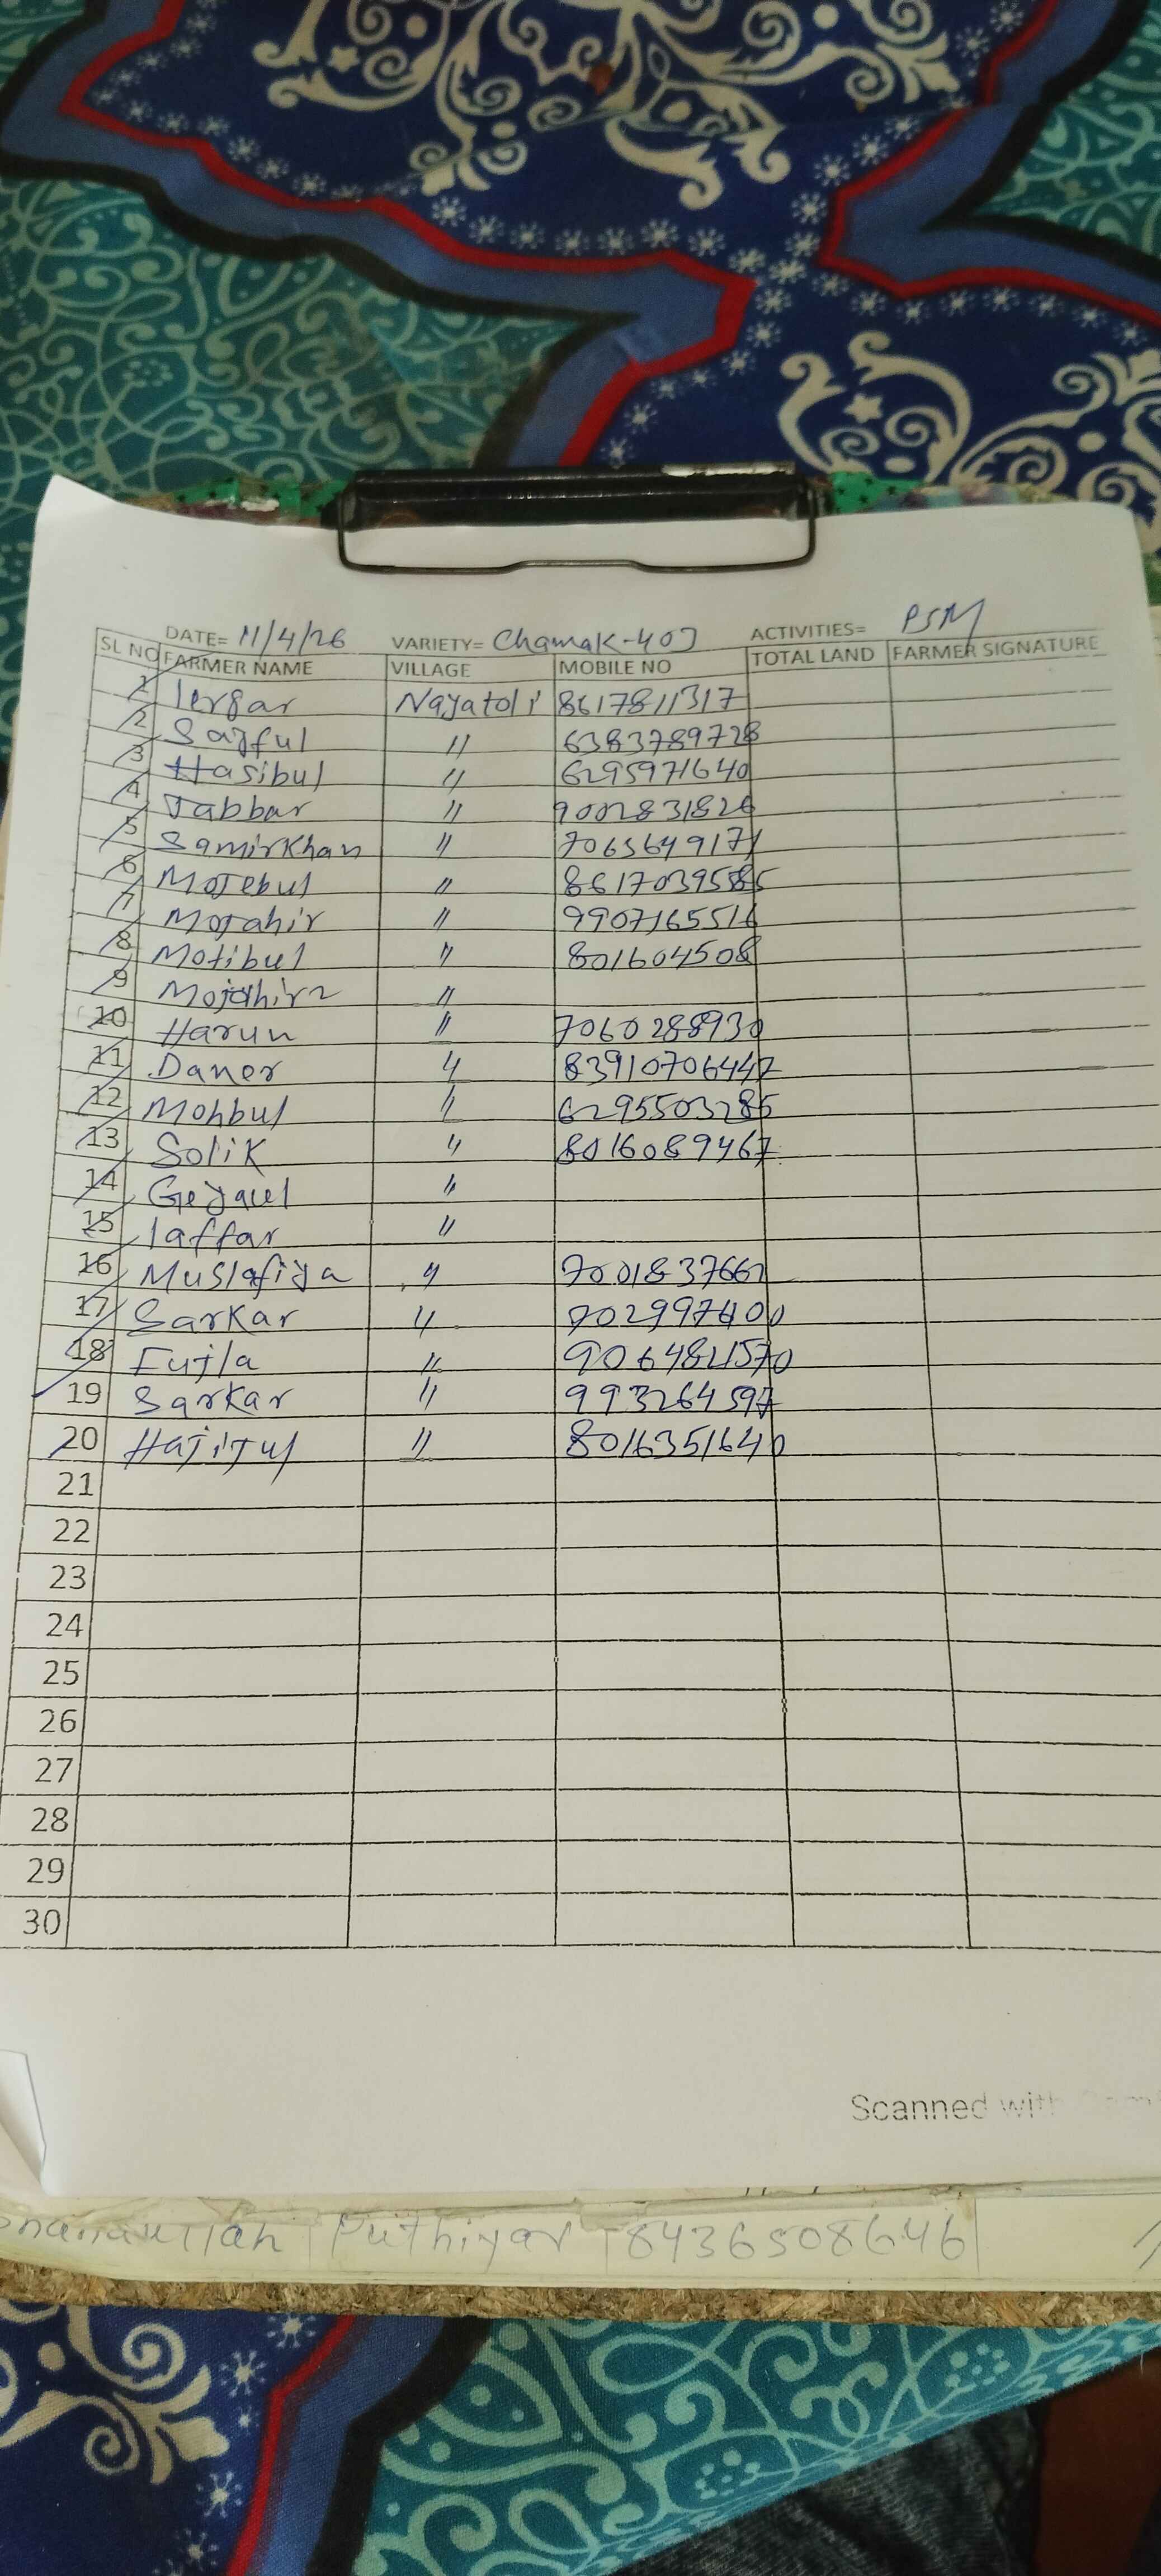 DATE= 11/4/26 VARIETY= Chamak-403 ACTIVITIES= PSM
SL NO FARMER NAME VILLAGE MOBILE NO TOTAL LAND FARMER SIGNATURE
1 Iergar Nayatoli 8617811317
2 Sajful " 6383789728
3 Hasibul " 6295971640
4 Jabbar " 9002831826
5 SamirKhan " 7063649171
6 Mojebul " 8617039585
7 Mojahir " 9907165516
8 Motibul " 801604508
9 Mojahir2 "
10 Harun " 7060288930
11 Daner " 83910706442
12 Mohbul " 6295503285
13 Solik " 8016089467
14 Gejaul "
15 Iaffar "
16 Muslafija " 7001837661
17 Sarkar " 702997400
18 Fujla " 9064821570
19 Sarkar " 993264597
20 Hajijul " 8016351640
21
22
23
24
25
26
27
28
29
30
Scanned with
Puthiyar 8436508646